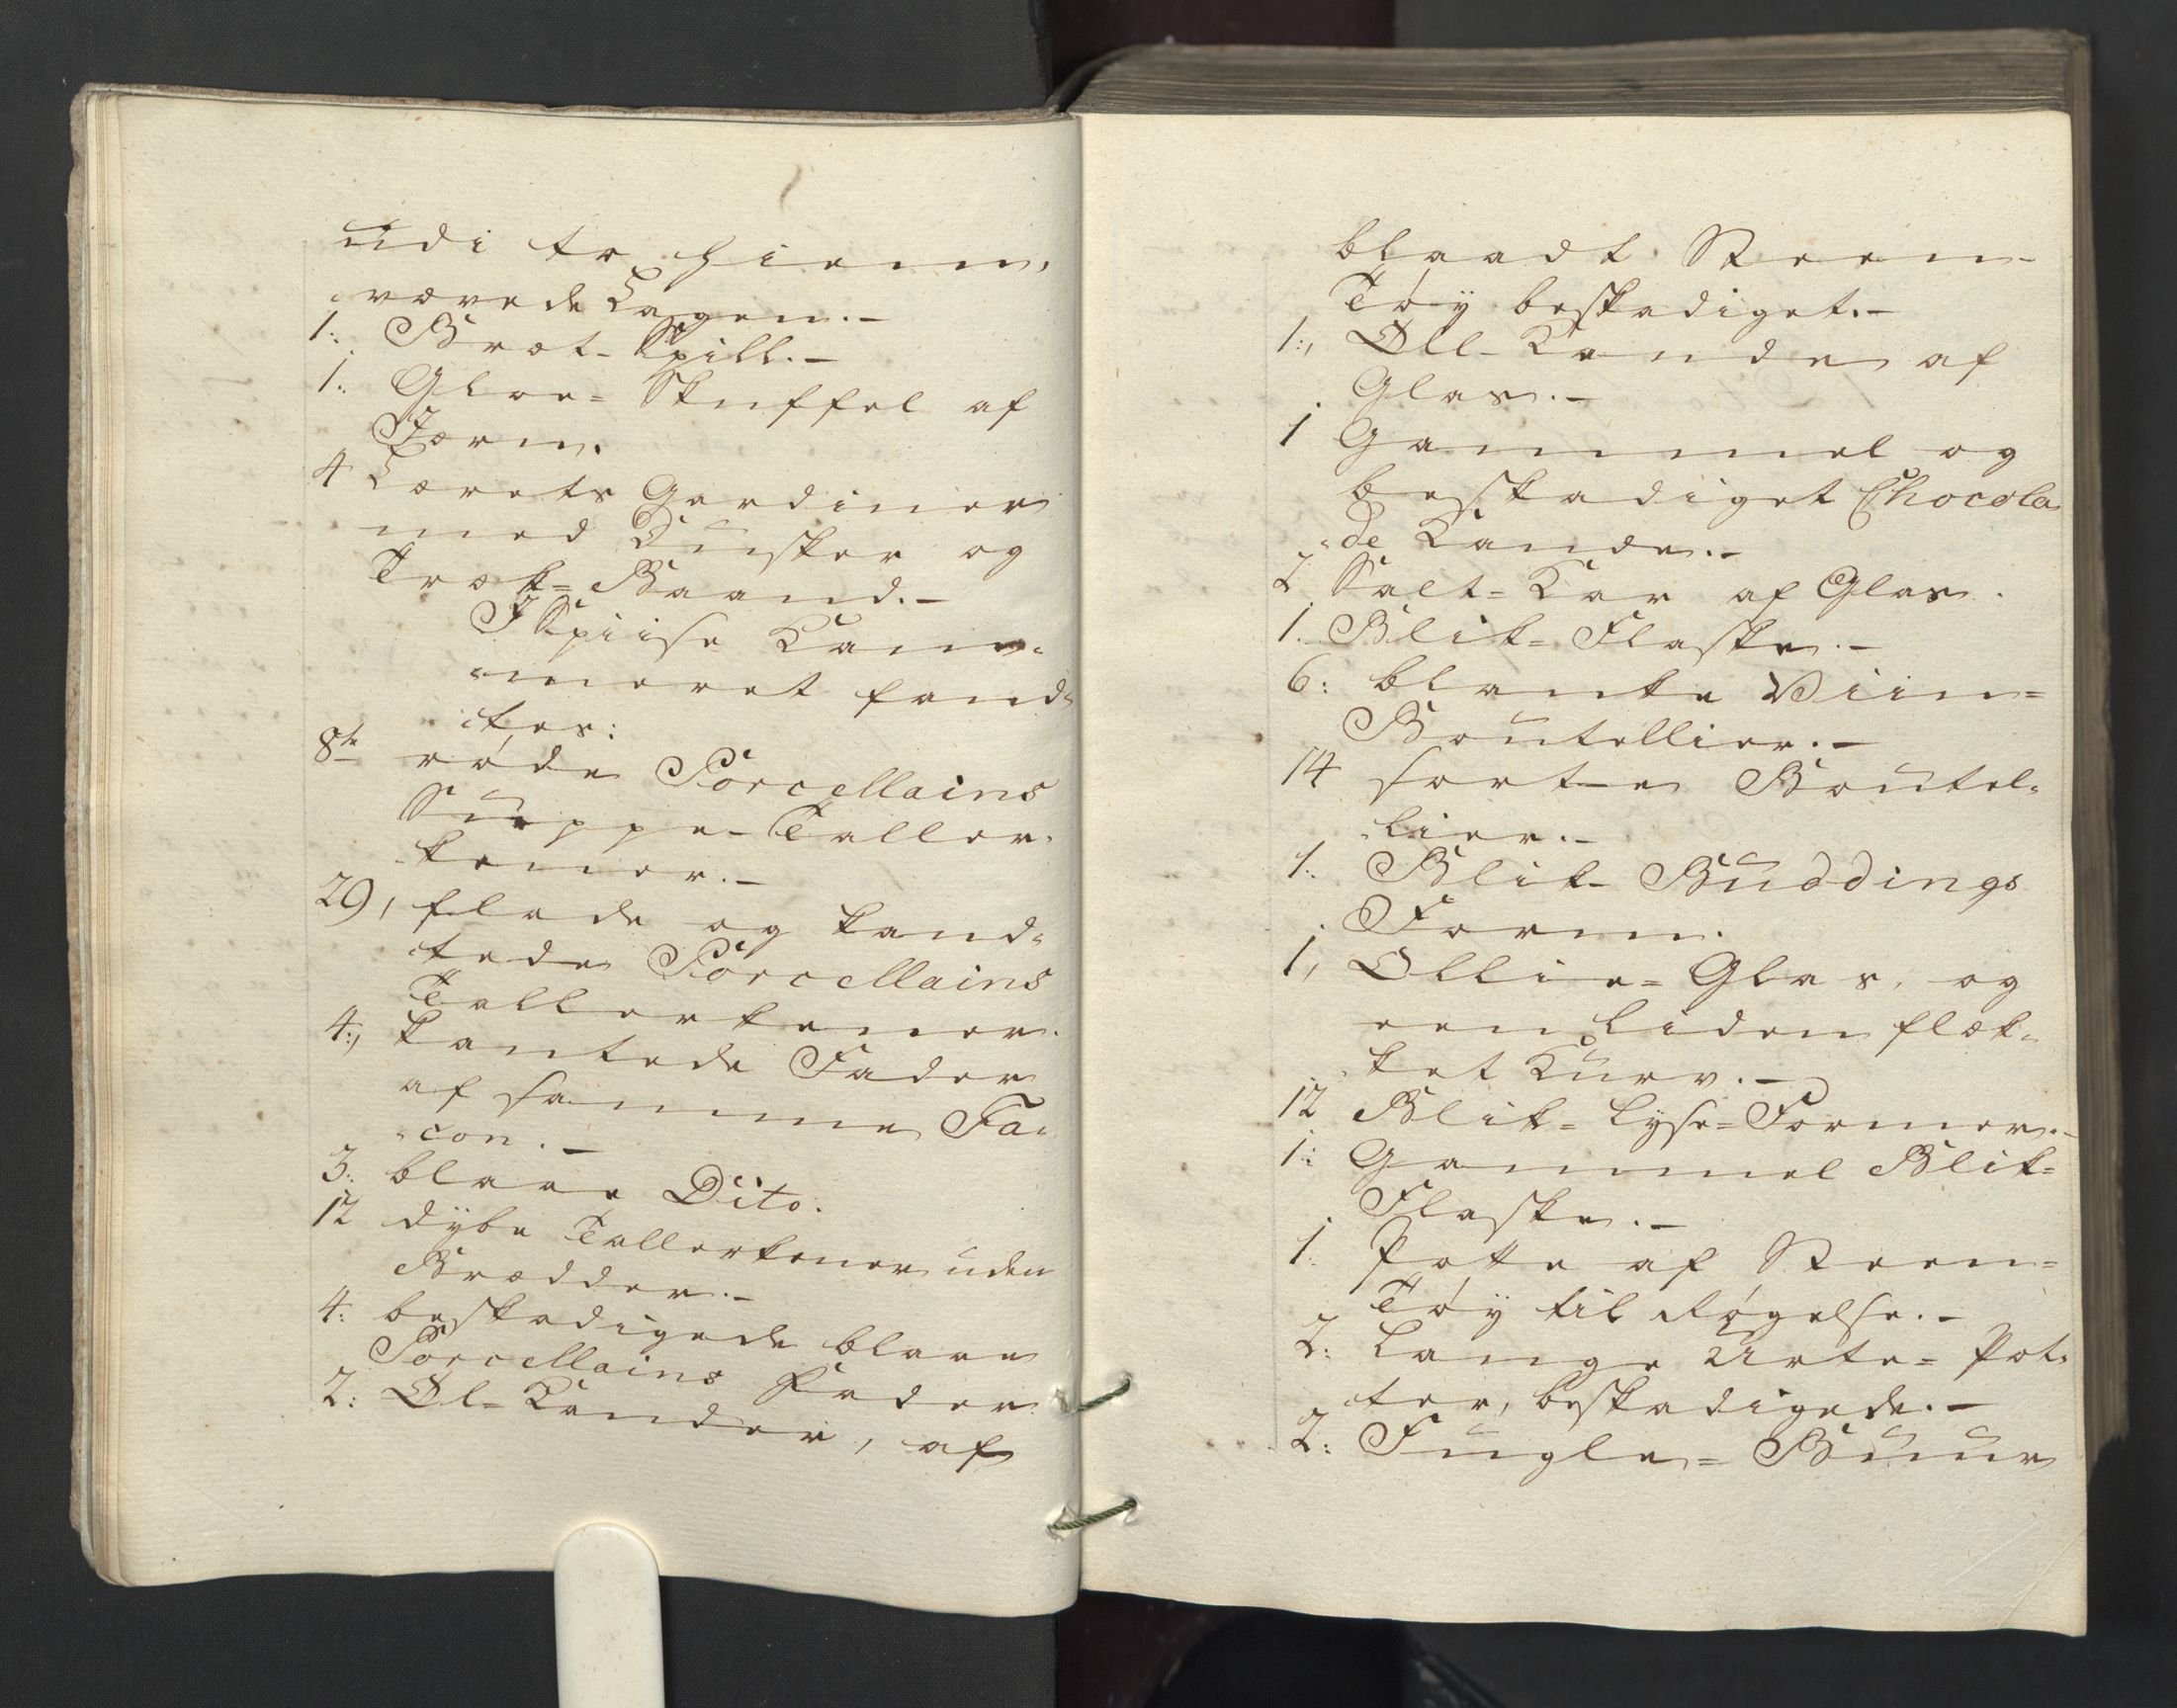 udi to hiem,
vævede Lagen.-
1: Bræt-Spill.-
1: Gloe=Skuffel af
Jærn.
4 Lærets Gardiner
med Dusker og
Træk=Baand.-
I Spiise Kam,
meret fand,
tes:
8te røde Porcellains
Suppe-Taller,
kener.-
29, flade og kand,
tede Porcellains
Tallerkener.
4:, kantede Fader
af samme Fa,
con.-
3: blaae Dito.
12 dybe Tallerkener uden
Brædder.-
4: beskadigede blaae
Porcellains Fader
2: Øl-Kander, af
blaadt Steen-
Tøy beskadiget.-
1:, Øll-Kande af
Glas.-
1 Gammel og
beskadiget Chocola
de Kande.-
2 Salt=Kar af Glas.
1. Blik=Flaske.-
6: blanke Viin=
Boutellier.-
14 sorte Boutel,
lier.-
1: Blik-Buddings
Form.
1, Ollie=Glas, og
een liden flæk,
ket Kurv.-
12 Blik=Lyse=Former.-
1: Gammel Blik=
Flaske.-
1: Potte af Steen=
Tøy til Røgelse.-
2: Lange Urte=Pot,
ter, beskadigede.-
2: Fugle=Buur